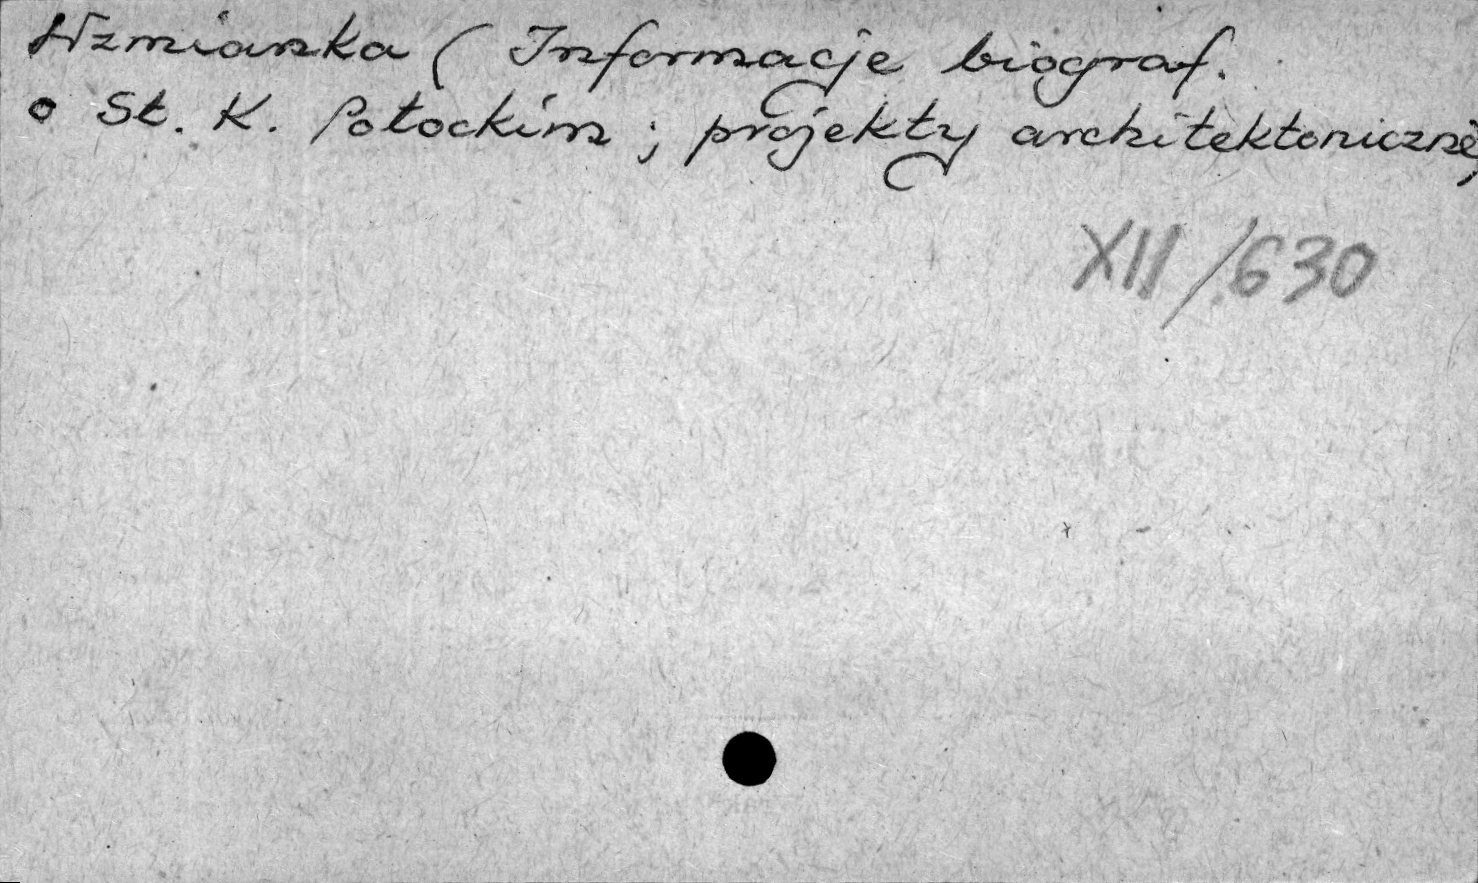 Wzmianka (Informacje biograf.
o St. K. Potockim ; projekty architektoniczne,
XII/630